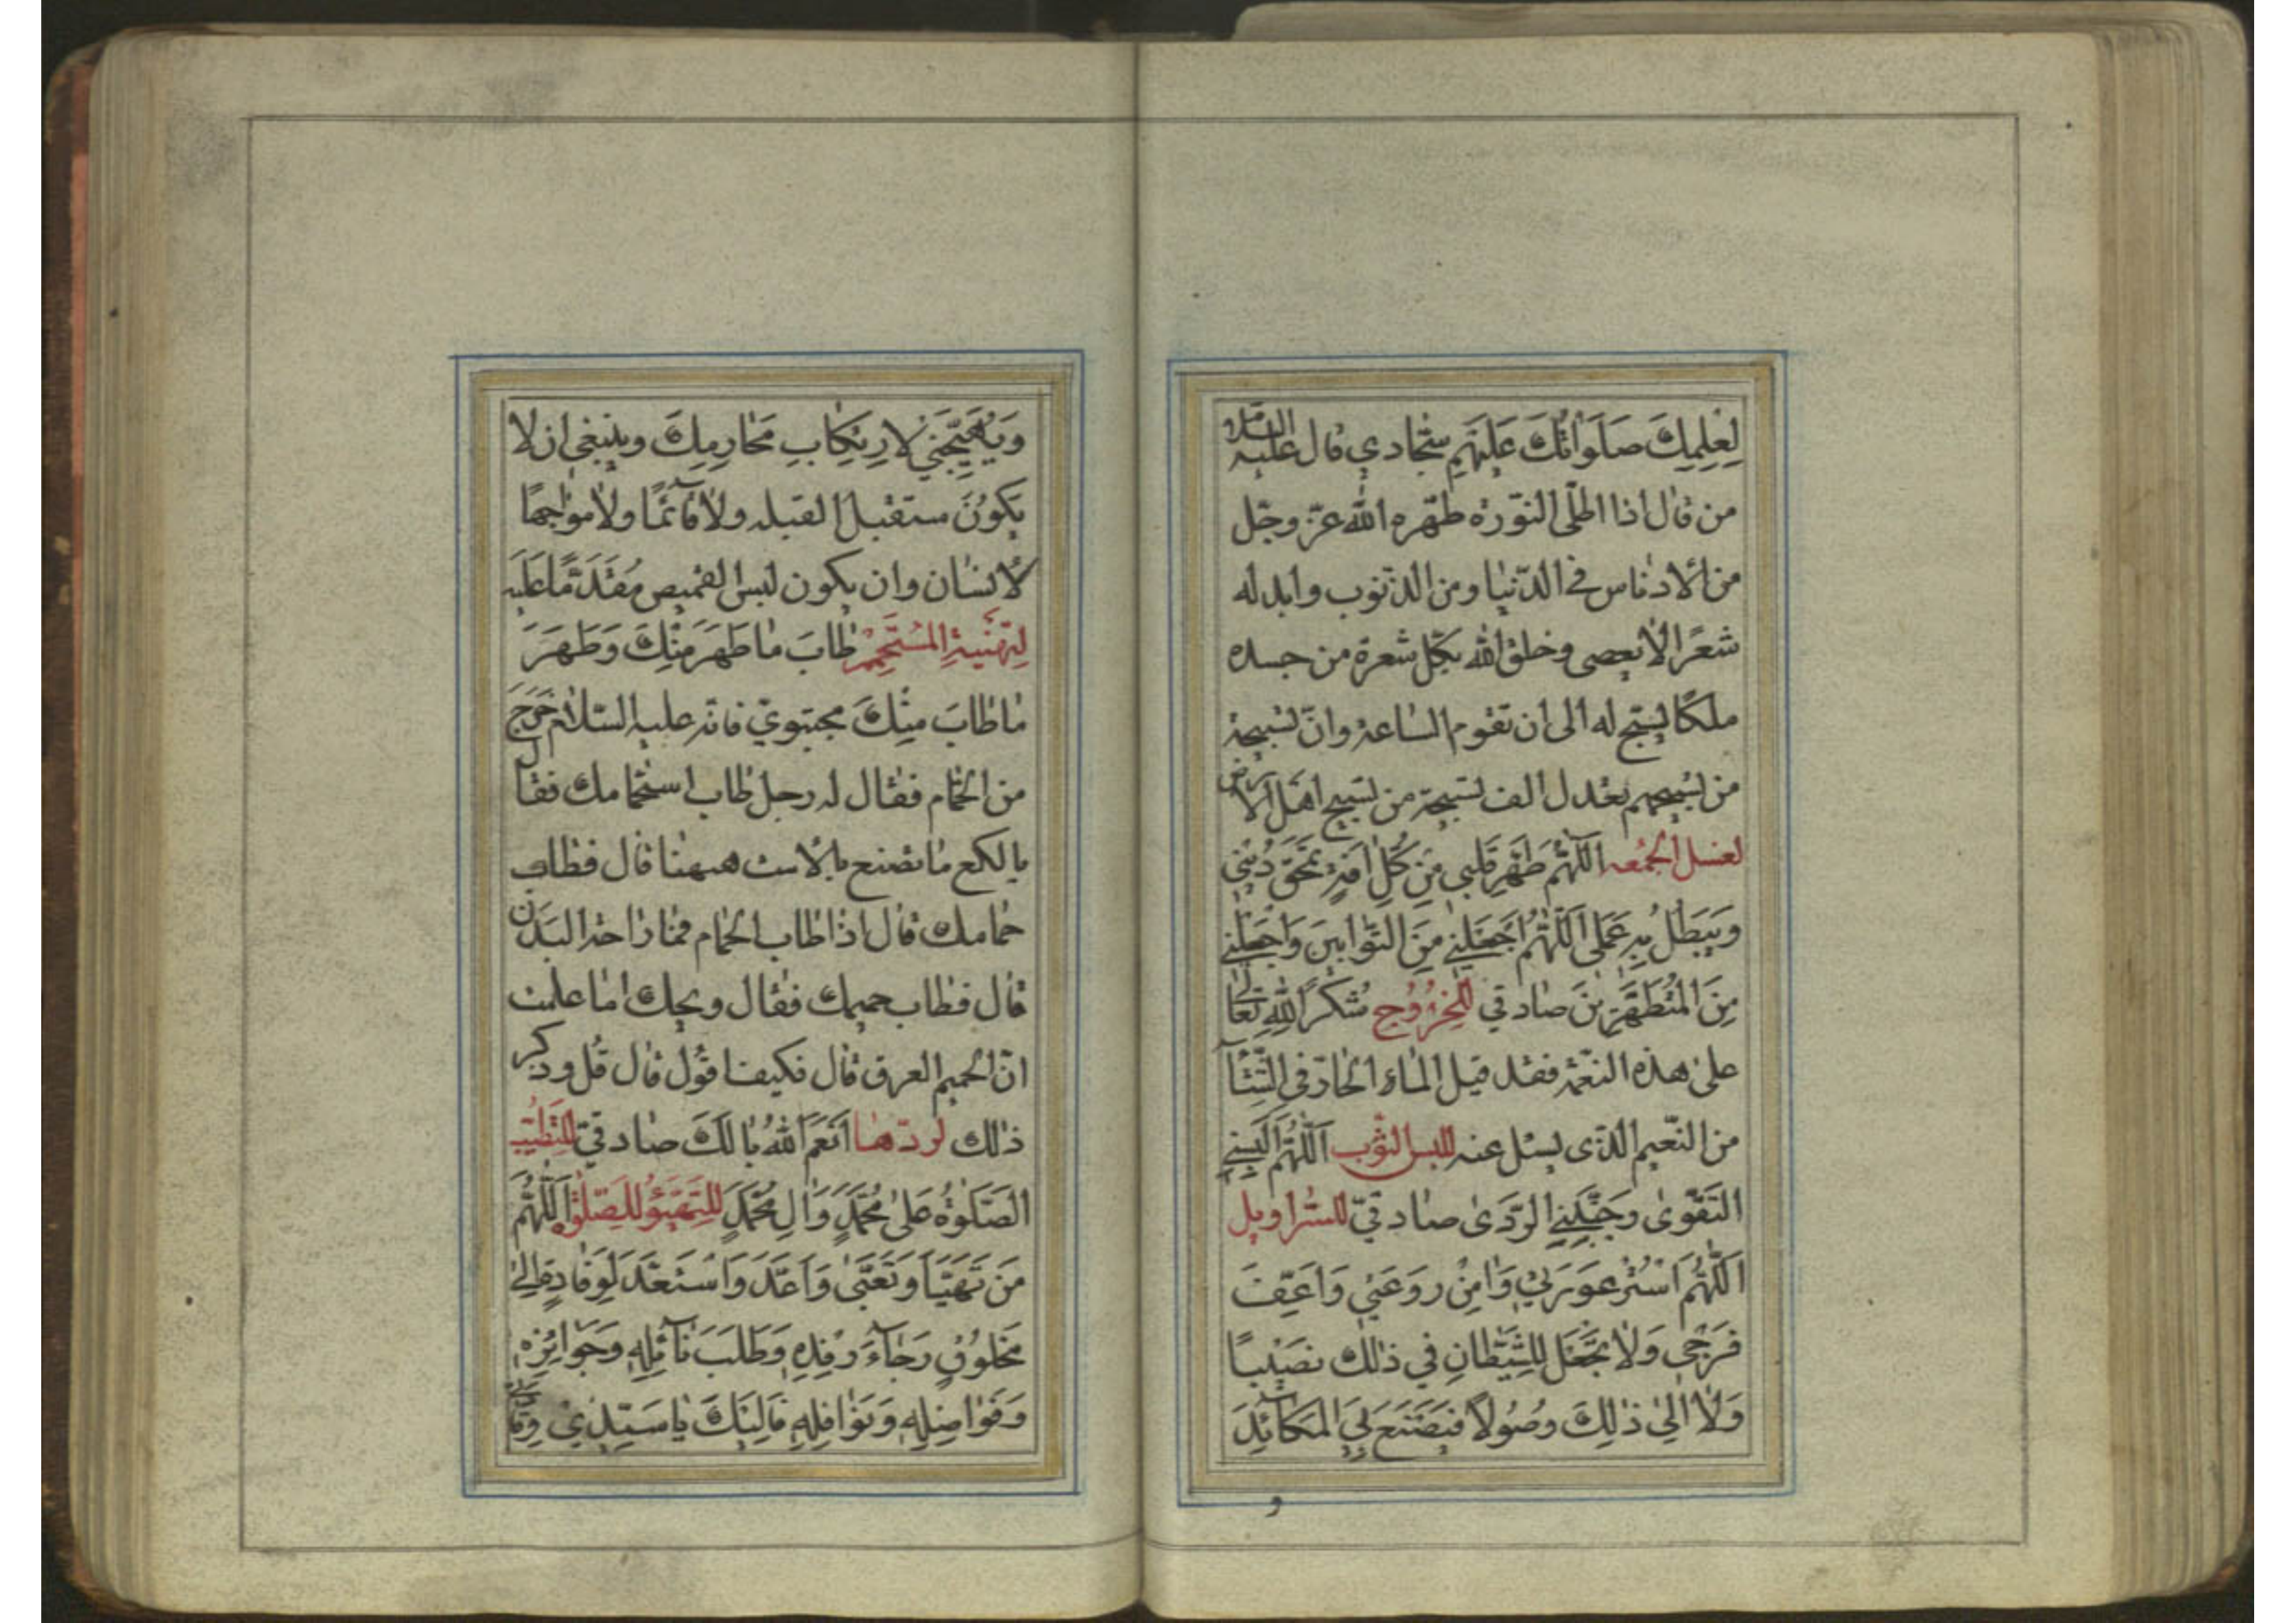 لِعِلمِكَ صَلَوٰاتُكَ عَلَيْهِم سجّادي قال عليه السلام
من قال اذا اطلى النّورة طهّره الله عزّ وجلّ
من الادناس في الدّنيا ومن الذّنوب وابدله
شعرًا لا يعصى وخلق الله بكلّ شعرة من جسده
ملكًا يسبّح له الى ان تقوم السّاعة وانّ تسبيحة
من تسبيحهم بعدل الف تسبيحة من تسبيح اهل الارض
لغسل الجمعه اَللّهُمَّ طَهِّر قَلبي مِن كُلِّ افَةٍ تمحَقُ ديني
وَيَبطُلُ بِهِ عَمَلي اَللّهُمَّ اجعَلني مِنَ التَّوّابينَ وَاجعَلني
مِنَ المُتَطَهِّرينَ صادقي لِلخُرُوج شُكرًا لِلّهِ تَعالى
على هذه النّعمة فقد قيل الماء الحارّ في الشّتآ
من النّعيم الّذى يسئل عنه للبس الثّوب اَللّهُمَّ اَلبِسني
التَّقوٰى وَجَنِّبنِي الرَّدىٰ صادقيّ للسّراويل
اَللّهُمَّ اسْتُر عَورَتي وَامِن رَوعَتي وَاَعِفَّ
فَرجي وَلا تَجعَل لِلشَّيطانِ في ذٰلك نَصيبًا
وَلا اِلىٰ ذٰلِكَ وُصُولاً فَيَصنَعَ لِيَ المَكآئِدَ
و
وَيُهَيِّجَني لارتِكابِ مَحارِمِكَ وينبغى ان لا
يكونَ ستقبل القبله ولا قآئمًا ولا مواجهًا
لانسان وان يكون لبس القميص مُقَدَّمًا عليه
لِتَهنِيَةِ المُستَحِمّ طابَ ما طَهَرَ مِنكَ وَطَهَرَ
ما طابَ مِنكَ مجتبويّ فانّه عليه السّلام خَرَجَ
من الحمّام فقال له رجل طاب استحمامك فقال
يا لكع ما تصنع بالاست هيهنا قال فطاب
حمّامك قال اذا طاب الحمّام فما راحة البَدن
قال فطاب حميمك فقال ويحك اما علمت
انّ الحميم العرق قال فكيف اقول قال قُل وذكر
ذالك لردّها اَنعَمَ اللهُ بالَكَ صادقيّ للتّطيّب
الصَّلوٰةُ عَلىٰ مُحَمَّدٍ وَالِ مُحَمَّدٍ للتّهيّؤ للصّلوٰة اَللّهُمَّ
مَن تَهَيَّاَ وَتَعَبّىٰ وَاَعَدَّ وَاستَعَدَّ لِوِفادَةٍ اِلىٰ
مَخلوقٍ رَجآءَ رِفدِهِ وَطَلَبَ نآئِلِهِ وَجَوائِزِهِ
وَفَواضِلِهِ وَنَوافِلِهِ فَاِلَيكَ يا سَيِّدي وِفادَتي